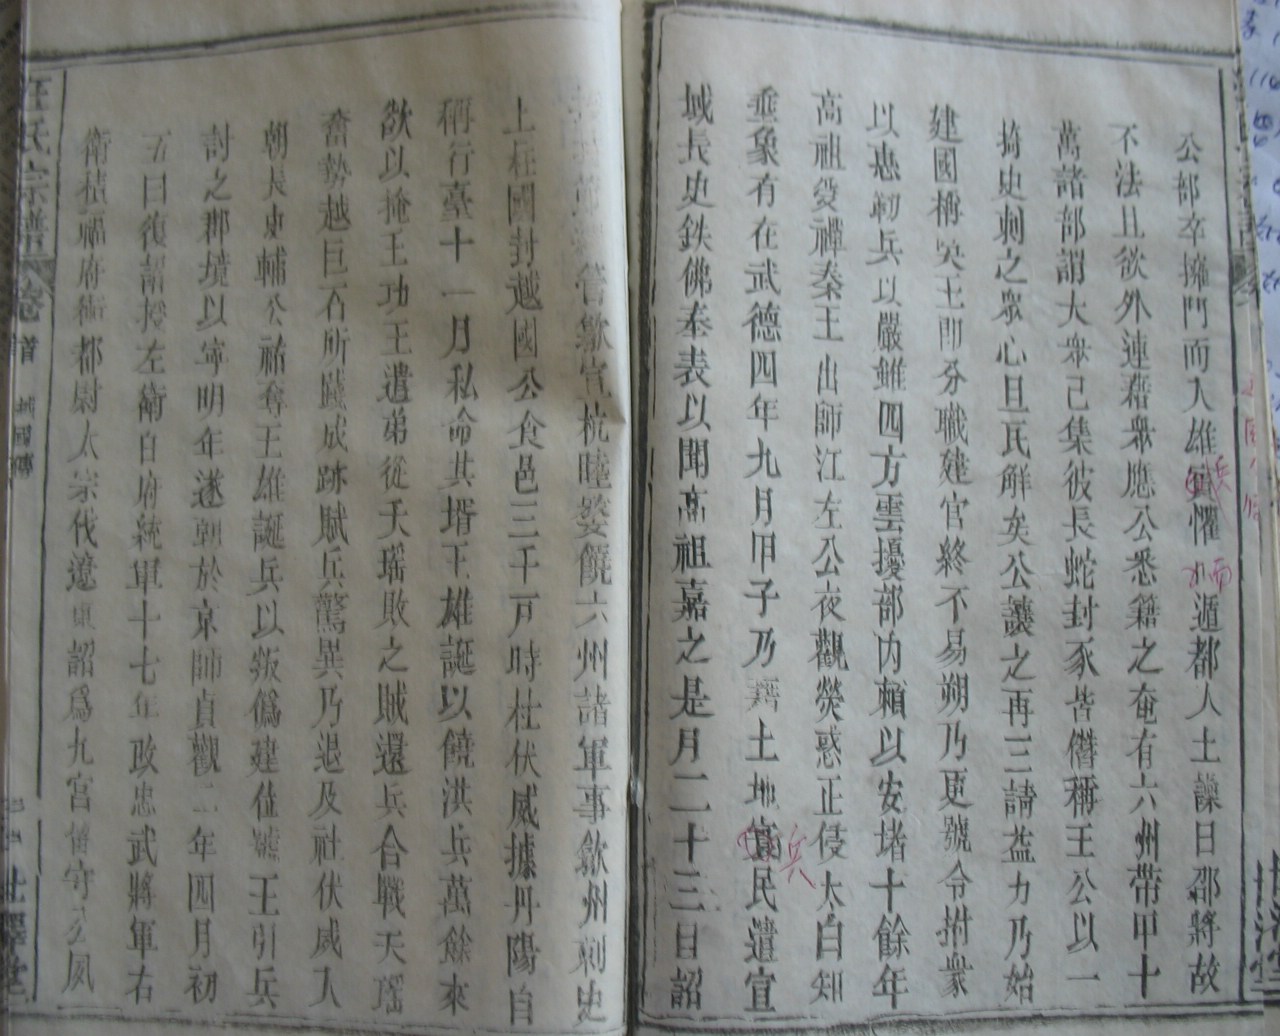 公部卒擁門而入雄懼遁都人士譟曰郡將故
不法且欲外連藉眾應公悉籍之奄有六州帶甲十
萬諸部謂大眾已集彼長蛇封豕皆僭稱王公以一
掎史刺之眾心且瓦解矣公讓之再三請益力乃始
建國稱吳王即分職建官終不易朔乃更號令拊眾
以惠勒兵以嚴雖四方雲擾部內賴以安堵十餘年
高祖受禪秦王出師江左公夜觀熒惑正侵太白知
垂象有在武德四年九月甲子乃藉土地兵民遣宣
城長史鉄佛奉表以聞高祖嘉之是月二十三日詔
管歙宣杭睦婺饒六州諸軍事歙州刺史
上柱國封越國公食邑三千戶時杜伏威據丹陽自
稱行臺十一月私命其壻王雄誕以饒洪兵萬餘來
歙以掩王功王遣弟從天瑶敗之賊還兵合戰天瑶
奮勢越巨石所踐成跡賊兵驚異乃退及社伏威入
朝長史輔公祏奪王雄誕兵以叛僞建僭號王引兵
討之郡境以寧明年遂朝於京師貞觀二年四月初
五曰復詔授左衛白府統軍十七年政忠武將軍右
衛積福府衛都尉太宗伐遼東詔爲九宮畱守
汪氏宗譜 卷首 越國傳